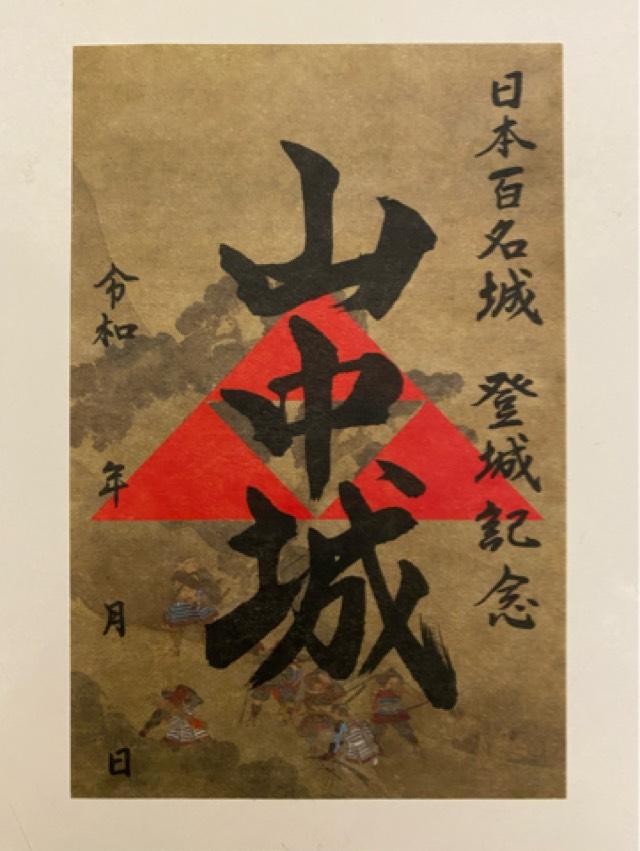 日本百名城　登城記念
山中城
令和　年　月　日